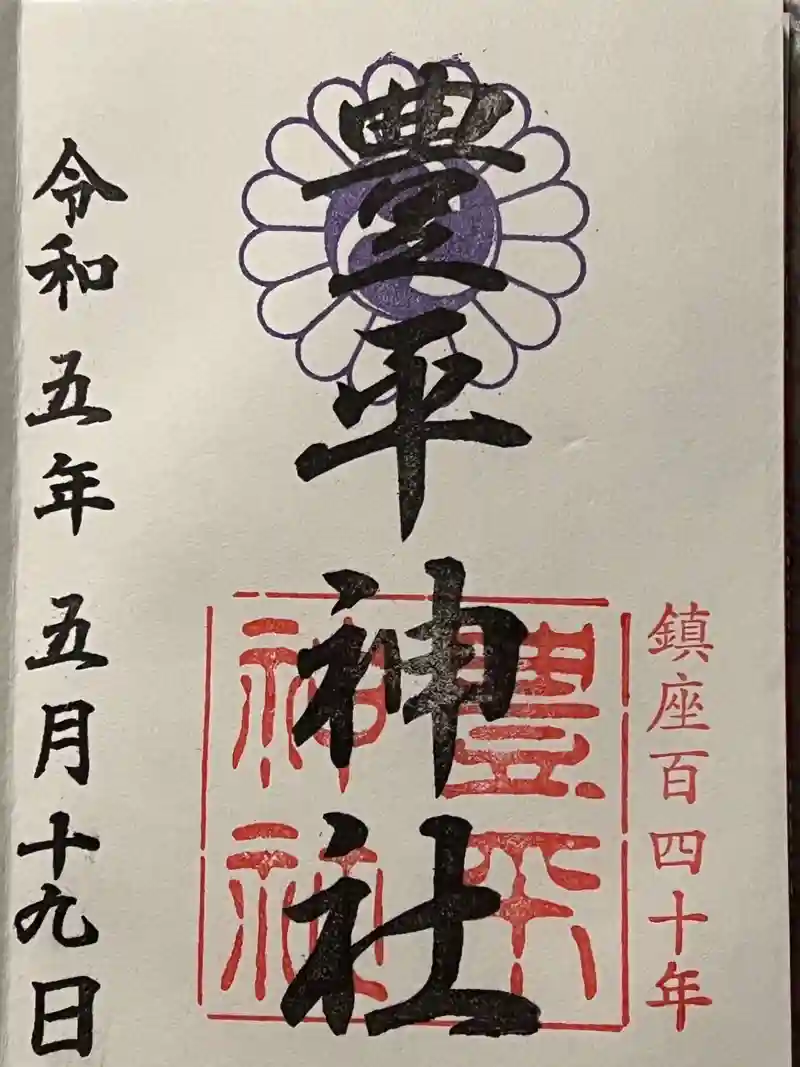 鎮座百四十年
豊平神社
豊平
神社
令和五年 五月十九日